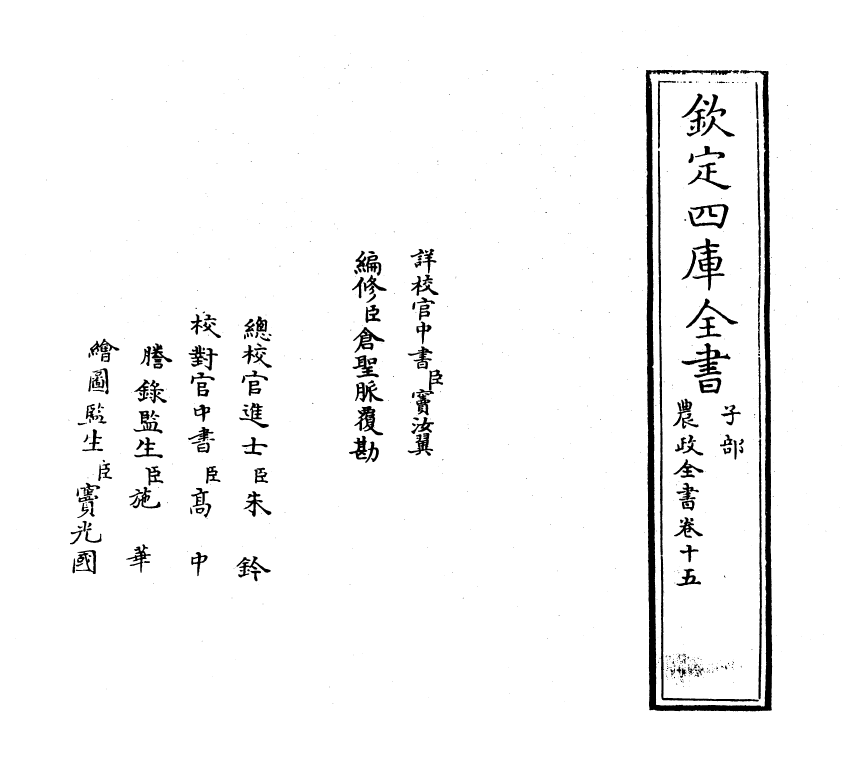 欽定四庫全書
子部
農政全書卷十五
詳校官中書臣竇汝翼
編修臣倉聖脈覆勘
總校官進士臣朱鈐
校對官中書臣高中
謄錄監生臣施華
繪圖監生臣竇光國